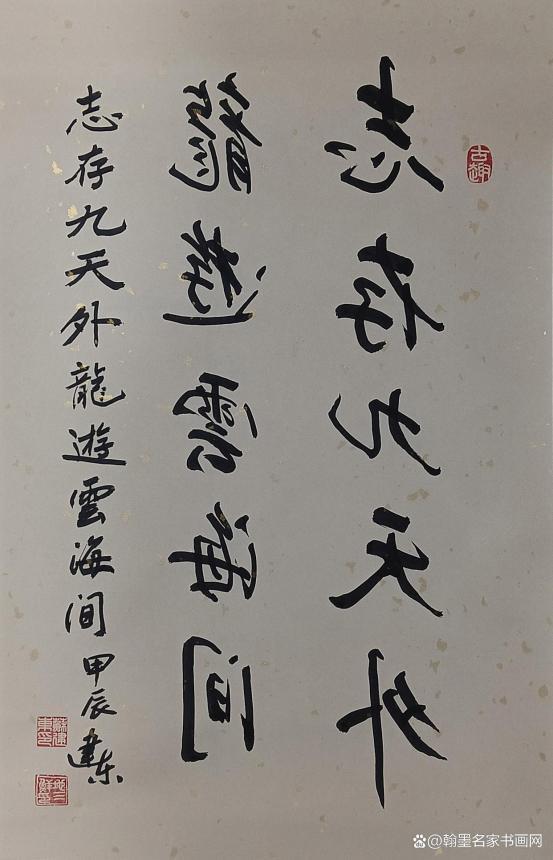 古趣
志存九天外
龍遊雲海间
志存九天外龍遊雲海间甲辰建东
翰墨名家书画网